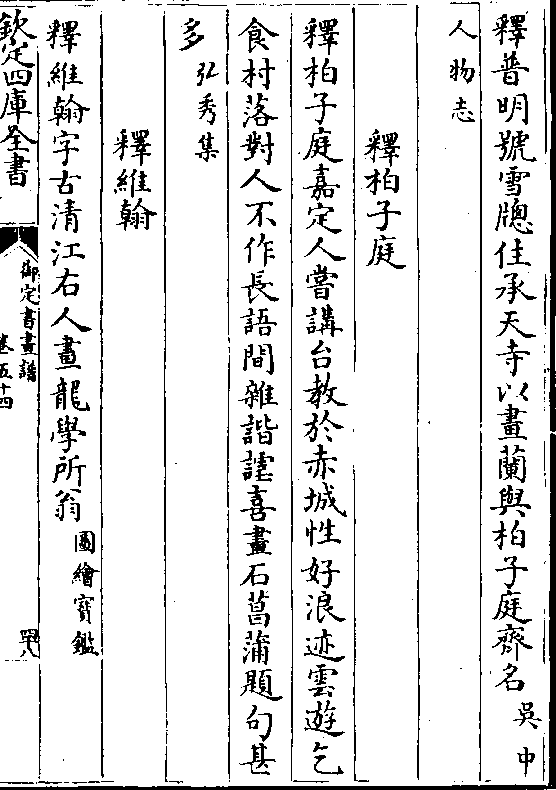 釋普明號雪牕住承天寺以畫蘭與柏子庭齊名吳中
人物志
釋柏子庭
釋柏子庭嘉定人嘗講台教於赤城性好浪迹雲遊乞
食村落對人不作長語間雜諧謔喜畫石菖蒲題句甚
多弘秀集
釋維翰
釋維翰字古清江右人畫龍學所翁圖繪寳鑑
欽定四庫全書
御定書畫譜
卷五十四
四八